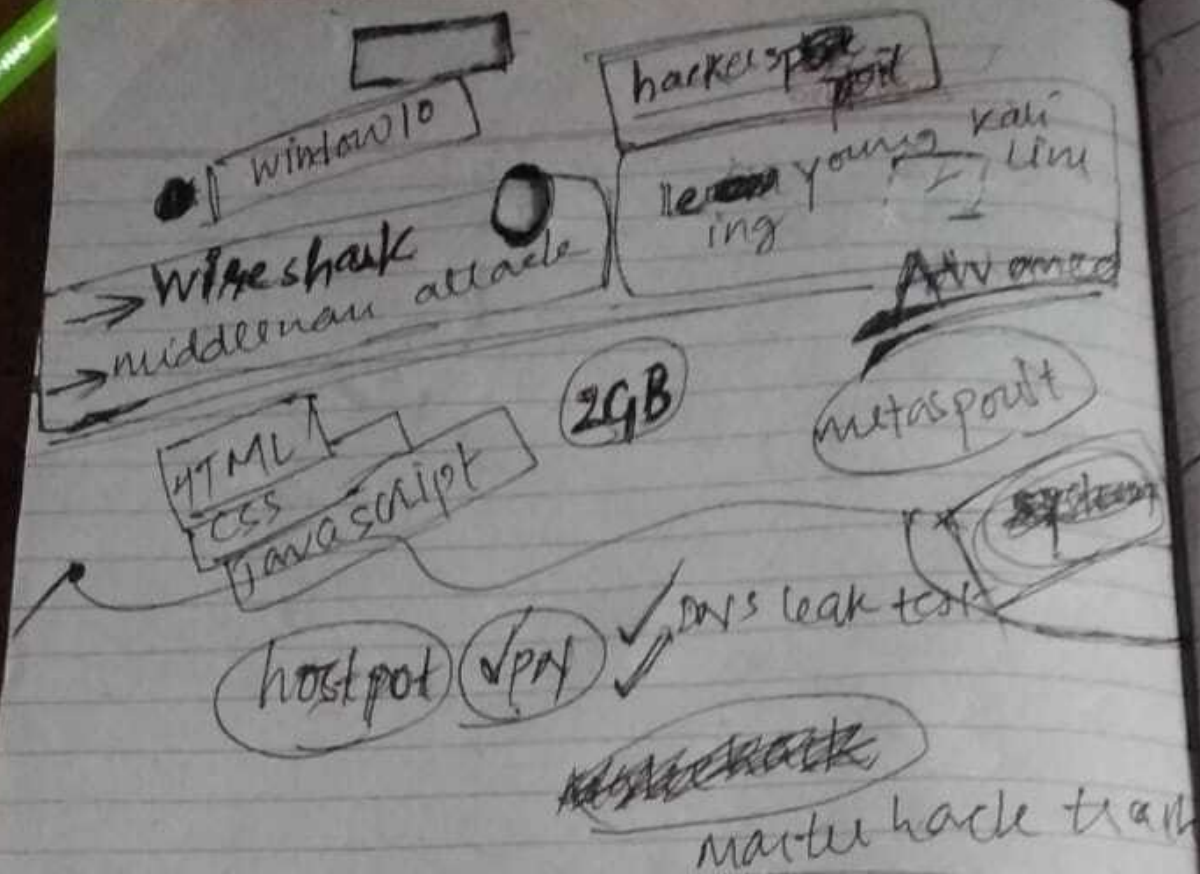 window10
hackersp
poit
young kali
le
ing
Linu
Wireshark
middlenan attack
Advanced
2GB
metaspoult
HTML
CSS
javascript
DNS leak test
hostpot
vpn
master hack team